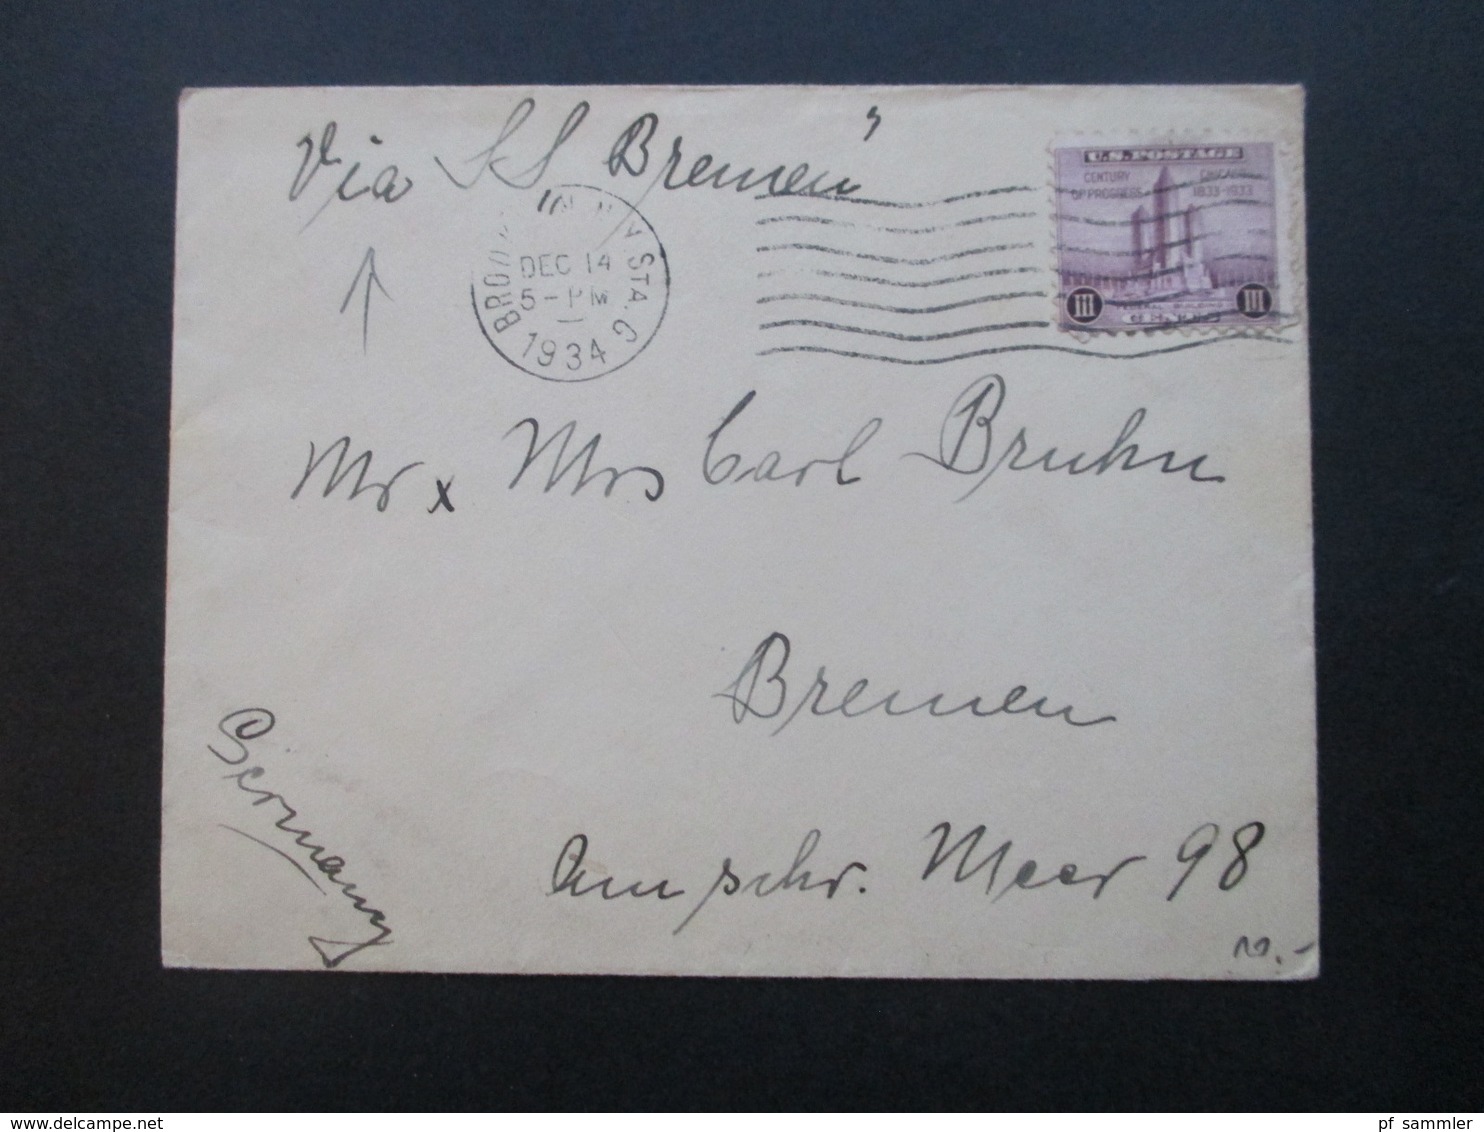 Via SS Bremen"
U.S. POSTAGE
CENTURY OF PROGRESS
CHICAGO 1833-1933
III III
N.Y. STA. G
DEC 14
5-PM
1934
Mr x Mrs Carl Bruhn
Bremen
Germany
Am schr. Meer 98
www.delcampe.net
pf_sammler